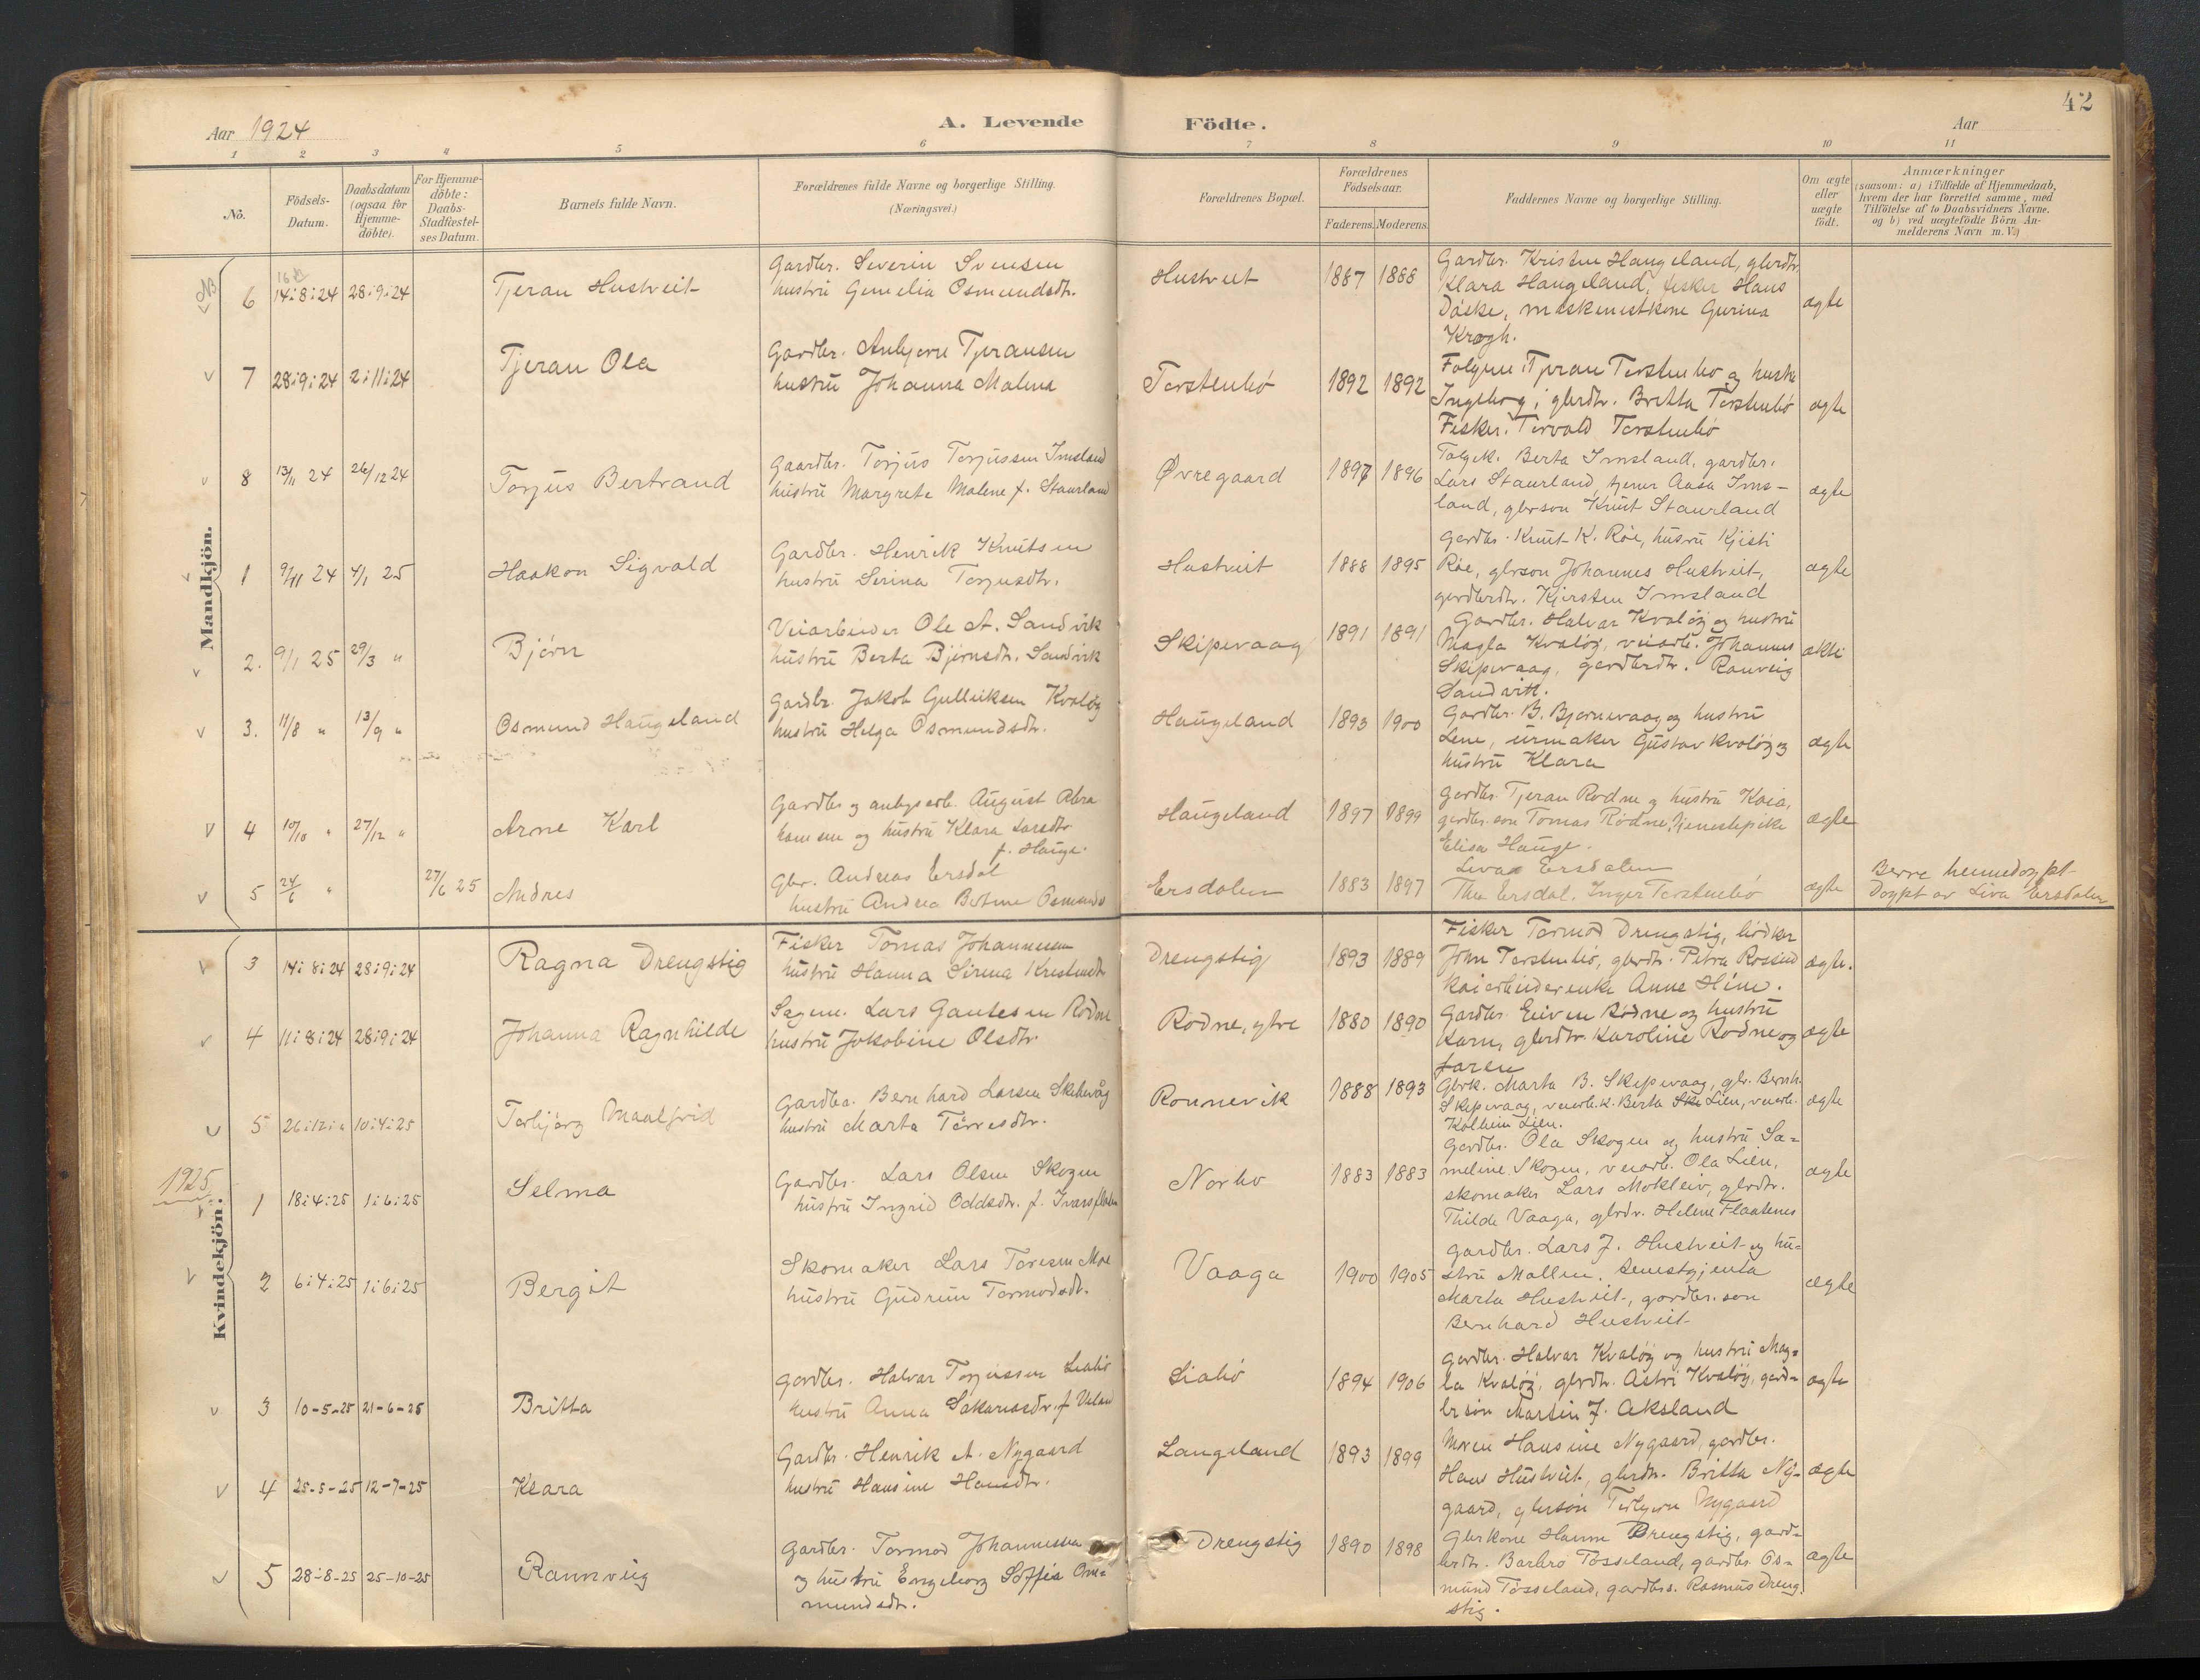 42
Aar 1924
A. Levende Födte.
Aar
1 2 3 4 5 6 7 8 9 10 11
No.
Födsels-
Datum.
Daabsdatum
(ogsaa for
Hjemme-
döbte).
For Hjemme-
döbte:
Daabs-
Stadfæstel-
ses Datum.
Barnets fulde Navn.
Forældrenes fulde Navne og borgerlige Stilling.
(Næringsvei.)
Forældrenes Bopæl.
Forældrenes
Födselsaar.
Faderens. Moderens.
Faddernes Navne og borgerlige Stilling.
Om ægte
eller
uægte
födt.
Anmærkninger
(saasom: a) i Tilfælde af Hjemmedaab,
hvem der har forrettet samme, med
Tilföielse af to Daabsvidners Navne,
og b) ved uægtefödte Börn An-
melderens Navn m. V.)
Mandkjön.
NB
6 14:8:24 28:9:24 Tjeran Hustveit
Gardbr. Severin Svensen
hustru Gemelia Osmundsdtr.
Hustveit 1887 1888
Gardbr. Kristen Haugeland, gbrdtr.
Klara Haugeland, fisker Hans
Daske, maskinistkone Gurina
Krogh.
ægte
7 28:9:24 2:11:24 Tjeran Ola
Gardbr. Anbjorn Tjeransen
hustru Johanna Malena
Torstenbö 1892 1892
Folgem. Tjeran Torstenbo og hustru
Ingeborg, gbrdtr. Britta Torstenbö
Fisker. Torvald Torstenbö
ægte
8 13/11 24 26/12 24 Torjus Bertrand
Gaardbr. Torjus Torjussen Imsland
hustru Margrete Malene f. Staurland
Øvregaard 1897 1896
Folgek. Berta Imsland, gardbr.
Lars Staurland, tjener Aasa Ims-
land, gbrson Knut Staurland
ægte
1 9/11 24 4/1 25 Haakon Sigvald
Gardbr. Henrik Knutsen
hustru Serina Torjusdtr.
Hustveit 1888 1895
Gardbr. Knut K. Röe, hustru Kjisti
Röe, gbrson Johannes Hustveit,
gardbrdtr. Kjersten Imsland
ægte
2. 9/1 25 29/3 " Björn
Veiarbeider Ole A. Sandvik
hustru Berta Björnsdtr. Sandvik
Skipevaag 1891 1891
Gardbr. Halvar Kvalöy og hustru
Magla Kvalöy, veiarb. Johannes
Skipevaag, gardbrdtr. Ranveig
Sandvik.
ekte
3. 11/8 " 13/9 " Osmund Haugeland
Gardbr. Jakob Gulleiksen Kvalöy
hustru Helga Osmundsdtr.
Haugeland 1893 1900
Gardbr. B. Bjørnevaag og hustru
Lene, urmaker Gustav Kvalöy og
hustru Klara
ægte
4 10/10 " 27/12 " Arne Karl
Gardbr og anlegsarb. August Abra
hamsen og hustru Klara Larsdtr
f. Hauge.
Haugeland 1897 1899
gardbr. Tjeran Rodne og hustru Kaia,
gardbr. son Tomas Rodne, tjenestepike
Elisa Hauge.
ægte
5 24/6 " 27/6 25 Andres
Gbr. Andreas Ersdal
hustru Andrea Botine Osmunds
Ersdalen 1883 1897
Liva Ersdalen
Thea Ersdal. Inger Torstenbö
ægte
Berre heimedoypt
Doypt av Liva Ersdalen
Kvindekjön.
3 14:8:24 28:9:24 Ragna Drengstig
Fisker Tomas Johannessen
hustru Hanna Sirina Kristensdtr
Drengstig 1893 1889
Fisker Tormod Drengstig, bödker
John Torstenbö, gbrdtr. Petra Rossind
kaiarbeiderenke Anna Hine.
ægte.
4 11:8:24 28:9:24 Johanna Ragnhilde
Sagem. Lars Gautesen Rodne
hustru Jakobine Olsdtr.
Rodne, ytre 1880 1890
Gardbr. Eiven Rodne og hustru
Karn, gbrdtr. Karoline Rodne og
faren
ægte
5 26:12:" 10:4:25 Torbjörg Maalfrid
Gardbr. Bernhard Larsen Skibevåg
hustru Marta Torresdtr.
Ronnevik 1888 1893
Gbrk. Marta B. Skipevaag, gbr. Bernh.
Skipevaag, veiarb.k. Berta Lien, veiarb.
Kolbein Lien.
ægte
1925
1 18:4:25 1:6:25 Selma
Gardbr. Lars Olsen Skogen
hustru Ingrid Oddsdtr. f. Ivarsflaten
Norbo 1883 1883
Gardbr. Ola Skogen og hustru Sa=
meline Skogen, veiarb. Ola Lien,
skomaker Lars Mokleiv, gbrdtr.
Thilde Vaaga, gbrdr. Helene Flaatenes
ægte
2 6:4:25 1:6:25 Bergit
Skomaker Lars Toresen Moe
hustru Gudrun Tormodsdtr.
Vaaga 1900 1905
Gardbr. Lars J. Hustveit og hu=
stru Mallene, tenestgjenta
Marta Hustveit, gardbr. son
Bernhard Hustveit
ægte
3 10-5-25 21-6-25 Britta
Gardbr. Halvar Torjussen Liabö
hustru Anna Sakariasdtr. f. Veland
Liabö 1894 1906
Gardbr. Halvar Kvalöy og hustru Mag=
la Kvalöy, gbrdtr. Astri Kvalöy, gard=
brson Martin J. Aksland
ægte
4 25-5-25 12-7-25 Klara
Gardbr. Henrik A. Nygaard
hustru Hansine Hansdtr.
Langeland 1893 1899
Moren Hansine Nygaard, gardbr.
Hans Hustveit, gbrdtr. Britta Ny-
gaard, gbrson Torbjorn Nygaard
ægte
5 28-8-25 25-10-25 Rannveig
Gardbr. Tormod Johannessen
og hustru Engeborg Soffia Os=
mundsdtr.
Drengstig 1890 1898
Gbrkone Hanna Drengstig, gard=
brdtr. Barbro Tosseland, gardbr. Os=
mund Tosseland, gardbrs. Rasmus Dreng
stig.
ægte